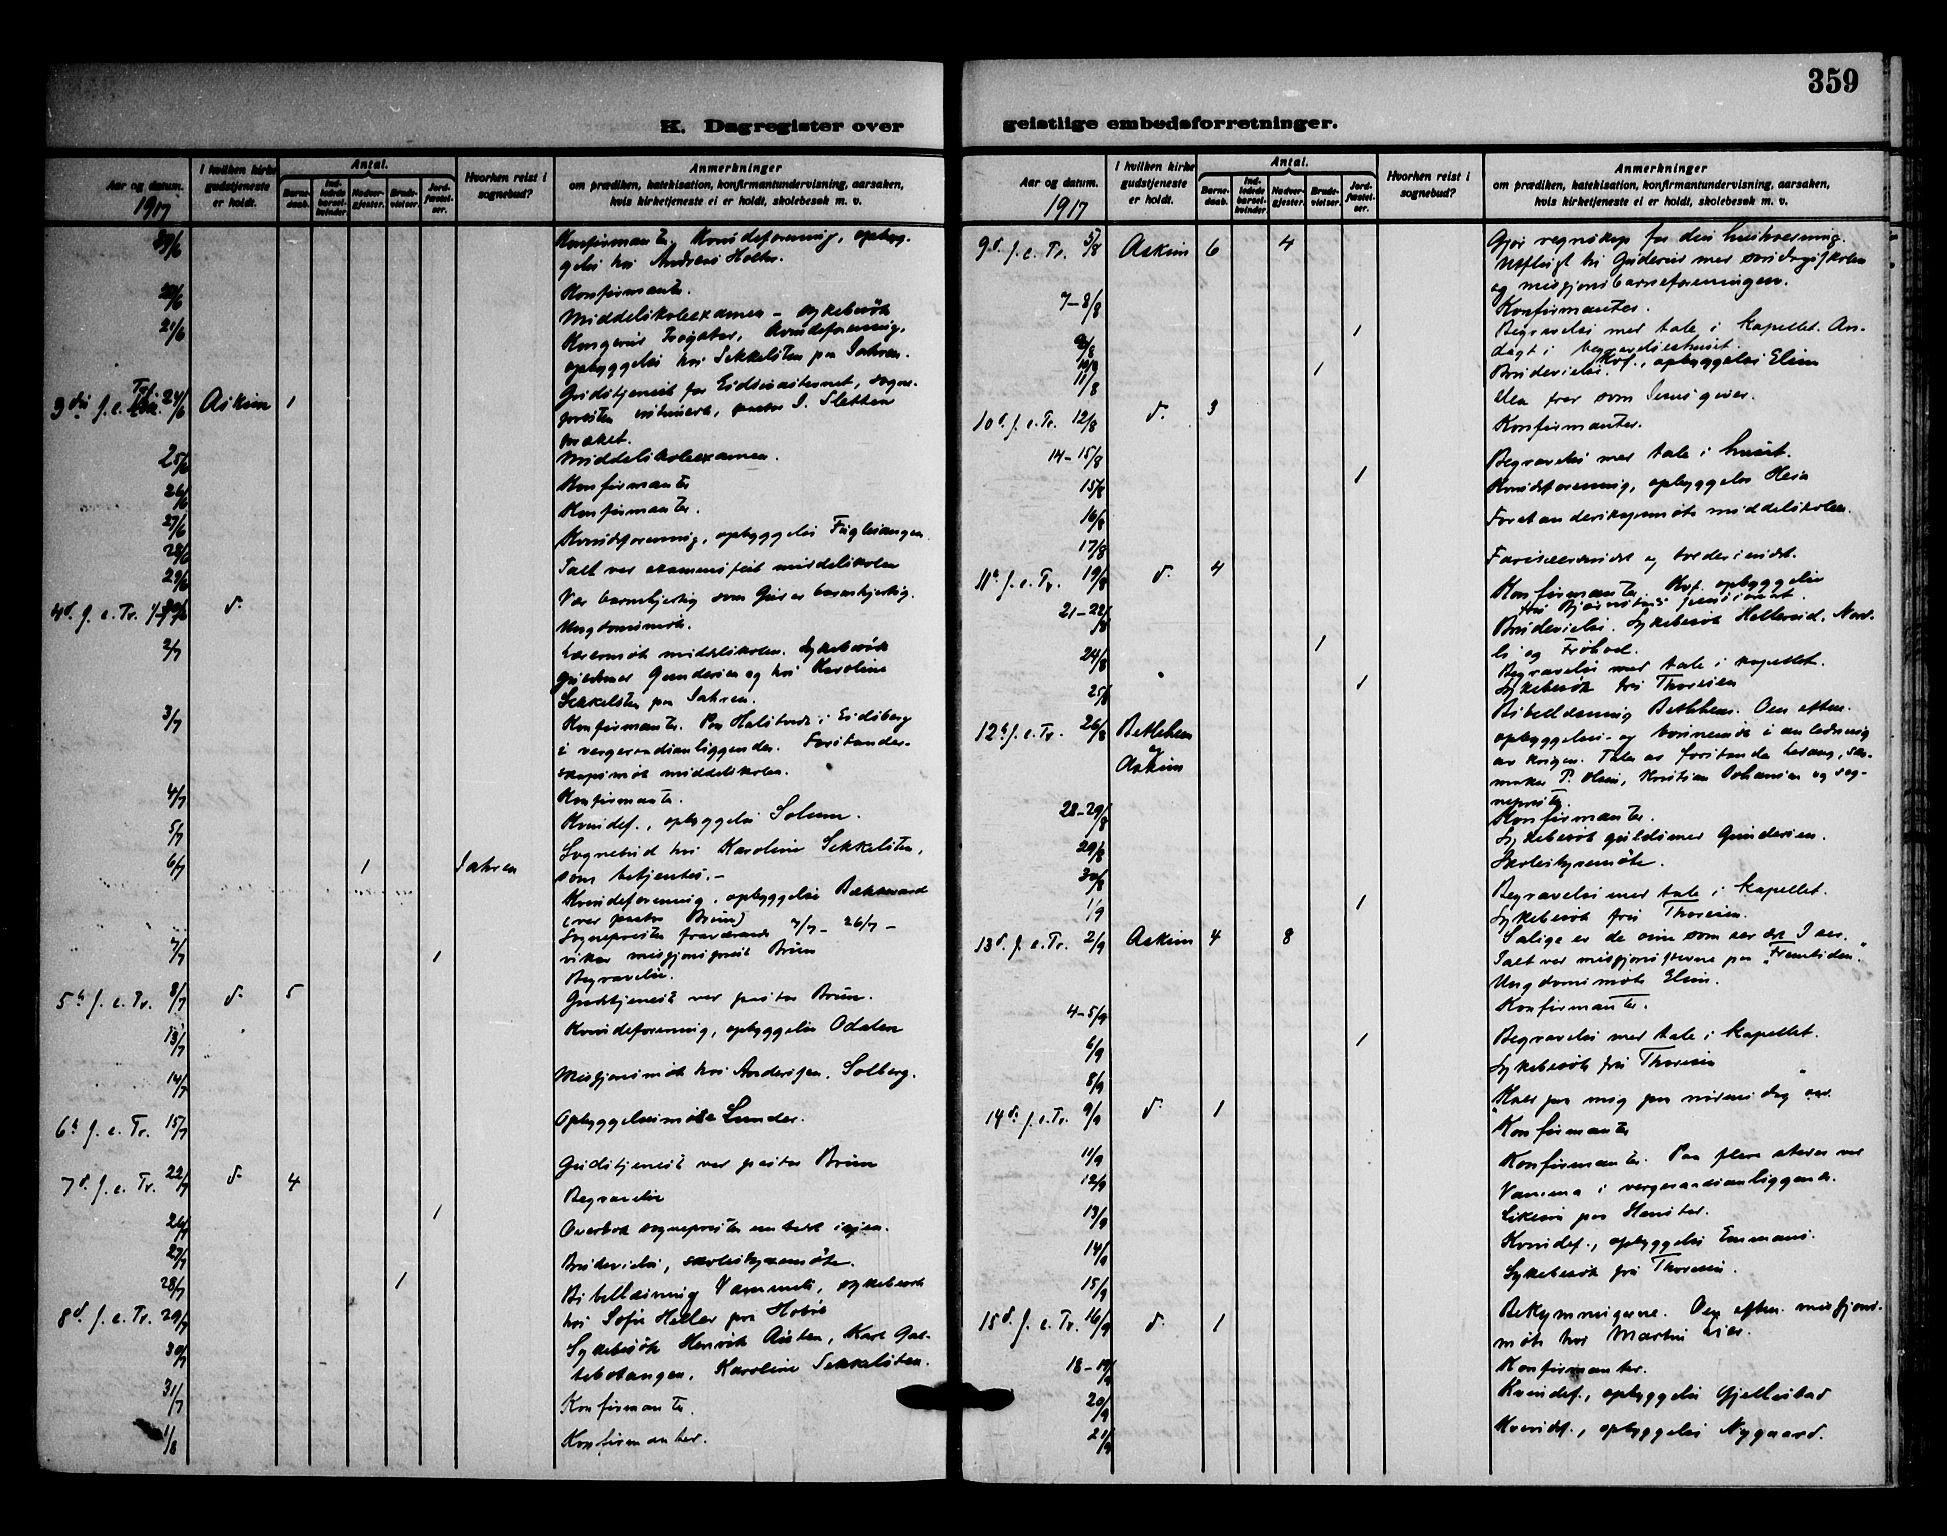 359
K. Dagregister over
geistlige embedsforretninger.
Aar og datum.
1917
I hvilken kirke
gudstjeneste
er holdt.
Antal.
Barne-
daab.
Ind-
ledede
barsel-
kvinder.
Nadver-
gjester.
Brude-
vielser.
Jord-
fæstel-
ser.
Hvorhen reist i
sognebud?
Anmerkninger
om prædiken, katekisation, konfirmantundervisning, aarsaken,
hvis kirketjeneste ei er holdt, skolebesøk m. v.
Konfirmanter. Kvindeforening, opbyg-
gelse hos Andreas Holter.
Konfirmanter.
21/6 Middelskoleexamen - sykebesøk
Kvindeforening,
opbyggelse hos Sekkelsten paa Jahren.
f. e. Tr. 24/6 Askim 1
Gudstjeneste
pastor J. Sletten
præket.
25/6 Middelskoleexamen.
26/6 Konfirmanter
27/6 Konfirmanter.
28/6 Kvindeforening, opbyggelse Fuglesangen
29/6 Talt ved examensfest middelskolen
4d. f. e. Tr. 1/7 d. Vær barmhjertig som Gud er barmhjertig.
Ungdomsmøte.
2/7 middelskolen. Sykebesøk
Gundersen og hos Karoline
Sekkelsten paa Jahren.
3/7 Konfirmanter. Paa i Eidsberg
i vergeraadsanliggender. Forstander-
skapsmøte middelskolen.
4/7 Konfirmanter.
5/7 Kvindef., opbyggelse Solum.
6/7 1 Jahren Sognebud hos Karoline Sekkelsten,
som betjentes. -
Kvindeforening, opbyggelse
(ved pastor Bruun)
Sognepresten fraværende 7/7 - 26/7 -
vikar misjonsprest Bruun
7/7 1 Begravelse.
5t. f. e. Tr. 8/7 d. 5 Gudstjeneste ved pastor Bruun.
13/7 Kvindeforening, opbyggelse Odalen
14/7 Misjonsmøte hos Andersen, Solberg.
6t. f. e. Tr. 15/7 Opbyggelsesmøte Lunder.
7d. f. e. Tr. 22/7 d. 4 Gudstjeneste ved pastor Bruun
26/7 1 Begravelse
27/7 Overtok sogneprestens embede igjen.
28/7 1 Brudevielse, skolestyremøte.
8d. f. e. Tr. 29/7 Bibellæsning Vammeli, sykebesøk
hos Sofie Heller paa
30/7 Sykebesøk Henrik Austen, Karl
Karoline Sekkelsten.
31/7 Konfirmanter.
1/8 Konfirmanter.
Aar og datum.
1917
I hvilken kirke
gudstjeneste
er holdt.
Antal.
Barne-
daab.
Ind-
ledede
barsel-
kvinder.
Nadver-
gjester.
Brude-
vielser.
Jord-
fæstel-
ser.
Hvorhen reist i
sognebud?
Anmerkninger
om prædiken, katekisation, konfirmantundervisning, aarsaken,
hvis kirketjeneste ei er holdt, skolebesøk m. v.
9d. f. e. Tr. 5/8 Askim 6 4 Gjør regnskap for din husholdning.
Utflugt til med søndagsskolen
og misjonsbarneforeningen.
7-8/8 Konfirmanter.
9/8 1 Begravelse med tale i kapellet. An-
dagt i
Kvf., opbyggelse Elim
11/8 1 Brudevielse.
10d. f. e. Tr. 12/8 d. 3 Den fred som Jesus giver.
14-15/8 Konfirmanter.
15/8 1 Begravelse med tale i huset.
16/8 Kvindeforening, opbyggelse
17/8 Forstanderskapsmøte middelskolen.
11t. f. e. Tr. 19/8 d. 4 Farisæersindet og toldersindet.
21-22/8 Konfirmanter. Kvf. opbyggelse
24/8 1 Brudevielse. Sykebesøk
25/8 1 Begravelse med tale i kapellet.
Sykebesøk fru Thoresen
12t. f. e. Tr. 26/8 Betlehem
og
Askim
Bibellæsning Betlehem. Om eften.
opbyggelses- og bønnemøte i anledning
av krigen. Taler av
P. Olsen, Kristian Johansen og sog-
nepresten.
28-29/8 Konfirmanter.
29/8 Sykebesøk guldsmed Gundersen.
30/8 Skolestyremøte.
1/9 1 Begravelse med tale i kapellet.
Sykebesøk fru Thoresen.
13d. f. e. Tr. 2/9 Askim 4 8 Salige er de øine som ser det I ser.
Talt ved misjonsstevne paa "Fremtiden".
Ungdomsmøte Elim.
4-5/9 Konfirmanter.
6/9 1 Begravelse med tale i kapellet.
8/9 Sykebesøk fru Thoresen
14d. f. e. Tr. 9/9 d. 1 "Kald paa mig paa nødens dag" osv.
11/9 Konfirmanter
12/9 Konfirmanter. Paa flere steder ved
Vamma i vergeraadsanliggende.
13/9
14/9 Kvindef., opbyggelse Emmaus.
15/9 Sykebesøk fru Thoresen.
15d. f. e. Tr. 16/9 d. 1 Bekymringerne. Om eften. misjons-
møte hos Martin Lier.
18-19/9 Konfirmanter.
20/9 Kvindef., opbyggelse Gjellestad
21/9 Kvindef., opbyggelse Nygaard.